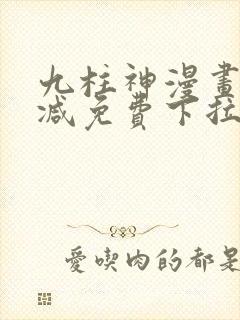 九柱神漫畫
減免費下拉
愛喫肉的都是